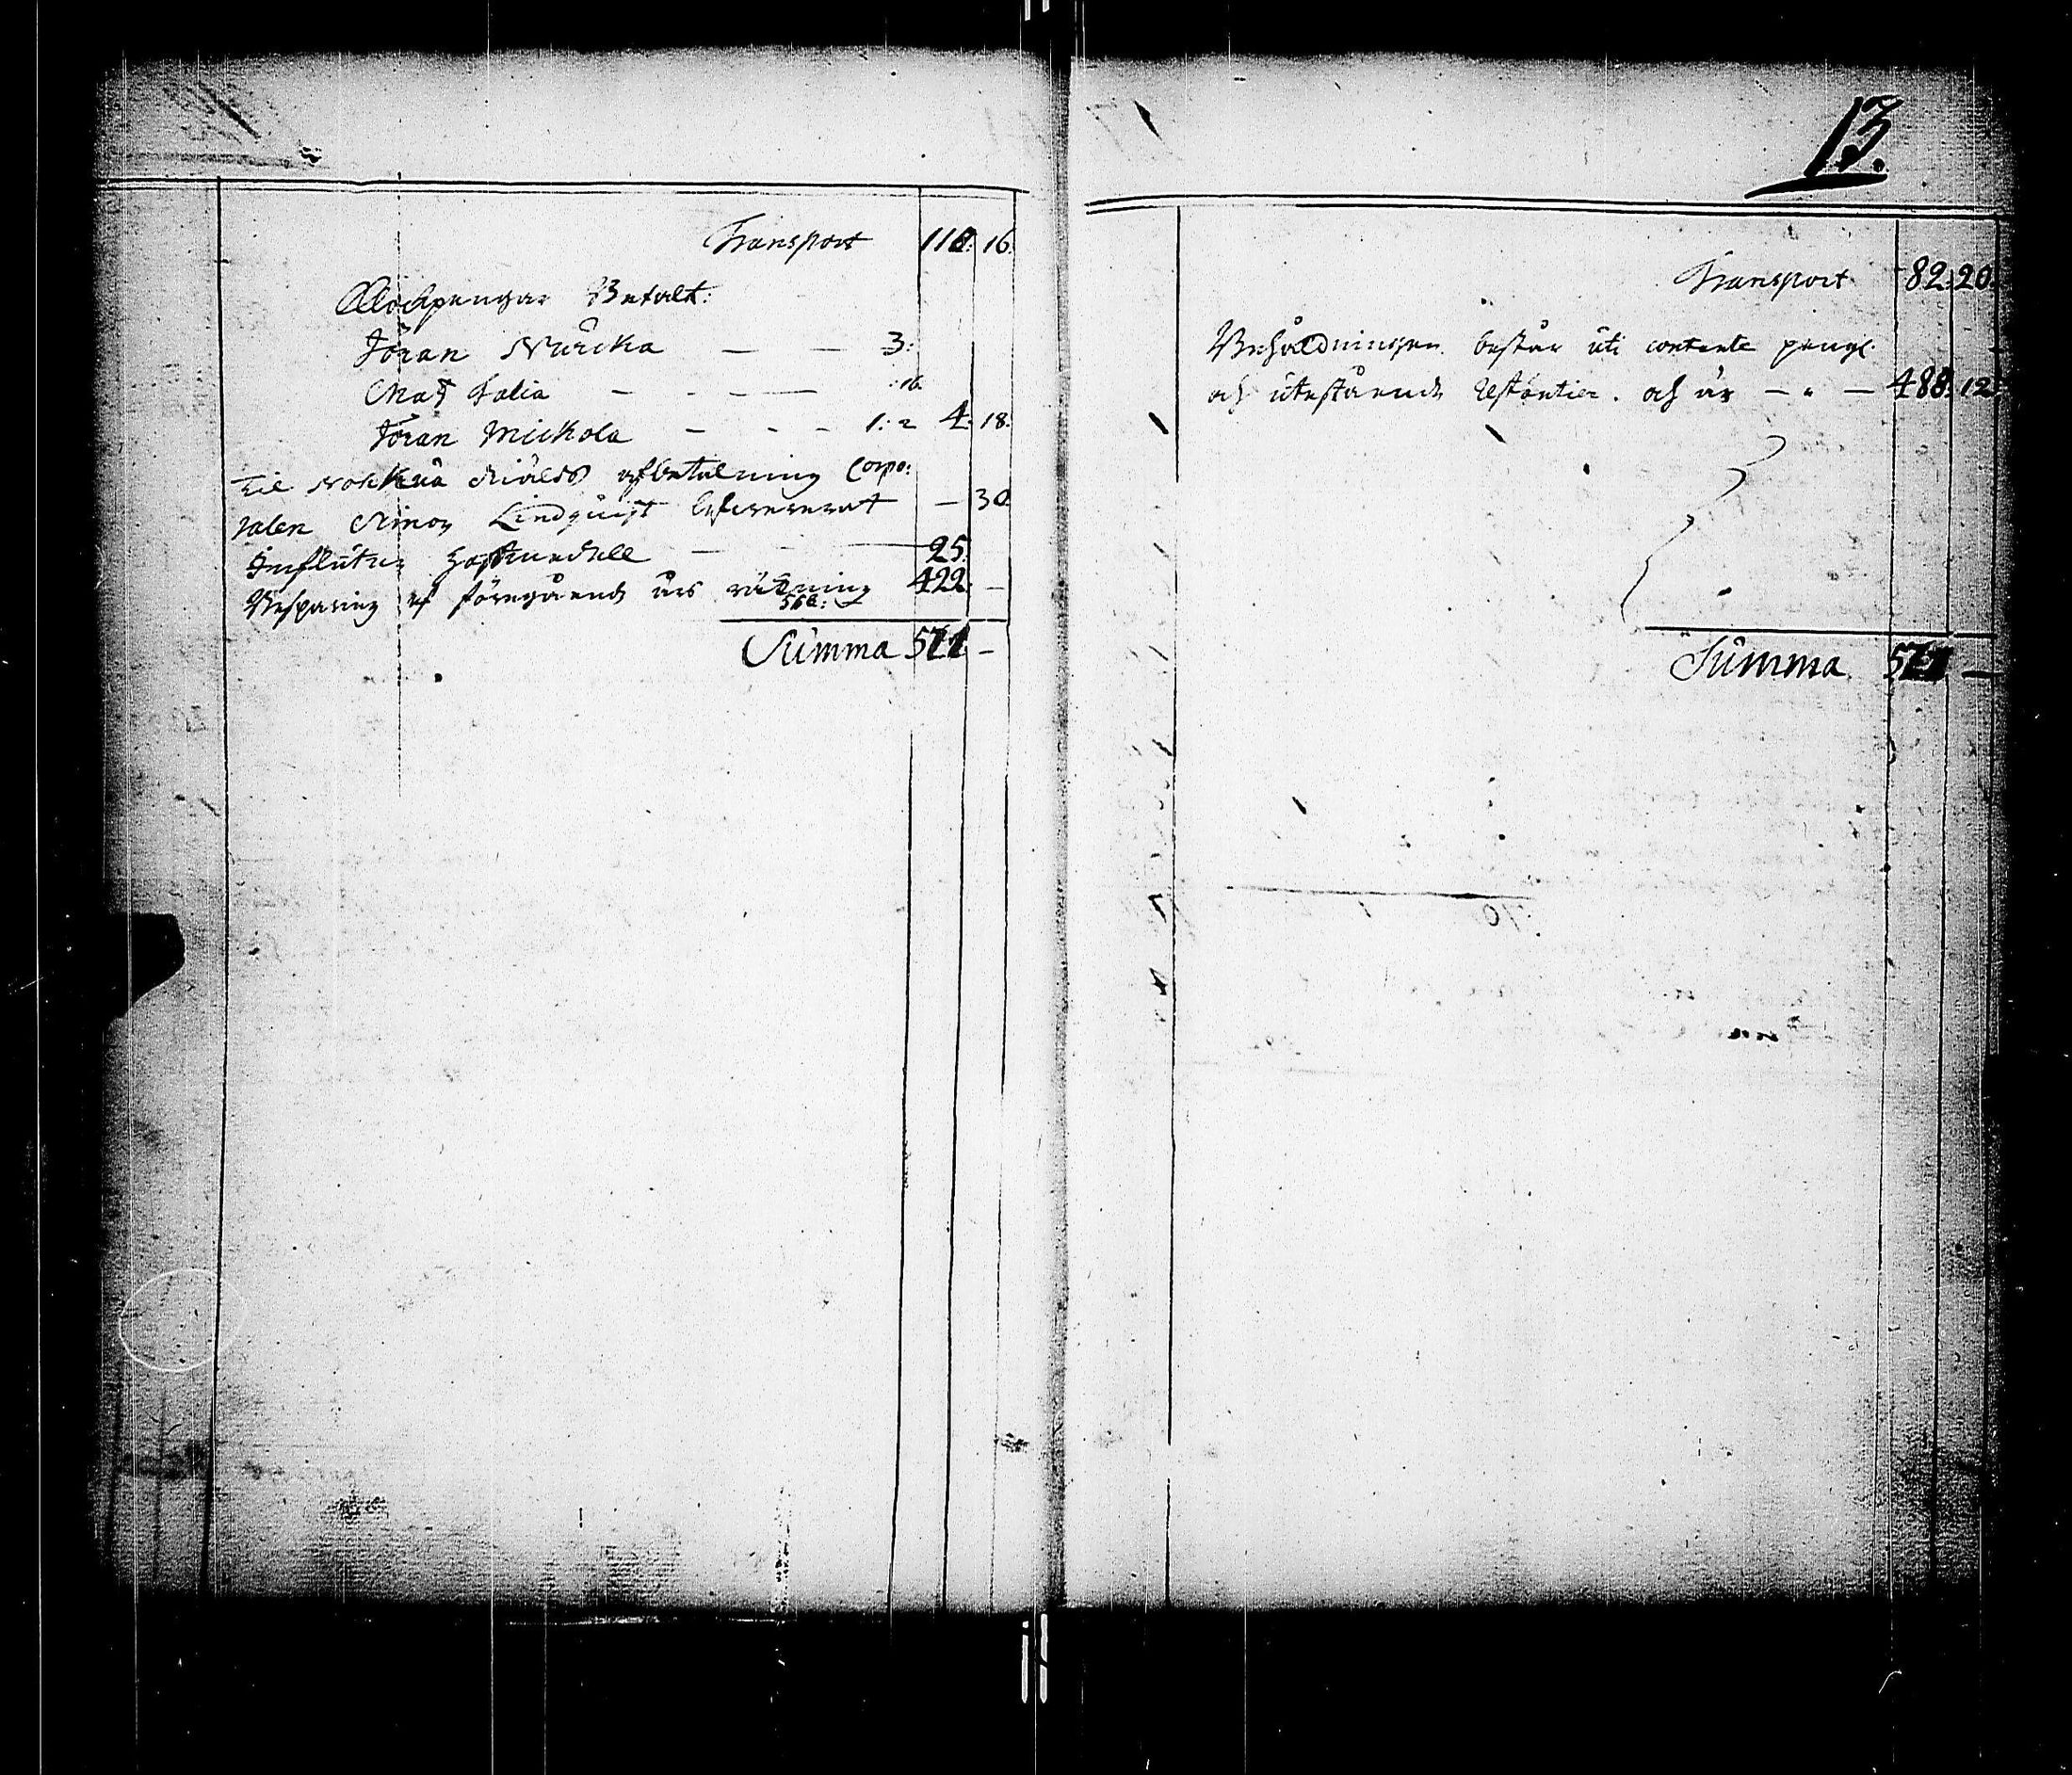 Transport 118: 16.
Klockpengar Betalt:
Jöran Nurcka — — 3:
Matz Salia — — — :16
Jöran Mickola — — — 1: 2 4: 18.
Til afbetalning Corpo:
ralen Simon Lindquist — 30.
Influtne — — 25.
Besparing af föregående års räkning 422. —
Summa 571 —
13.
Transport 82: 20.
Behåldningen består uti contente penge
och utestående restantier. och är — " — 488: 12
Summa 571 —